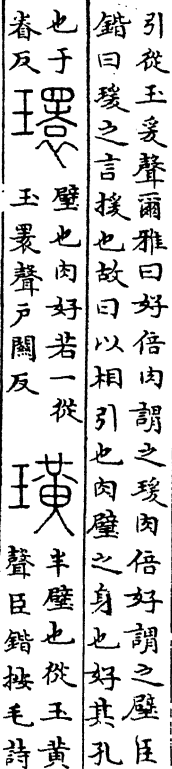 引從玉爰聲爾雅曰好倍肉謂之瑗肉倍好謂之璧臣
鍇曰瑗之言援也故曰以相引也肉璧之身也好其孔
也于眷反
環
璧也肉好若一從玉瞏聲戶關反
璜
半璧也從玉黃聲臣鍇按毛詩